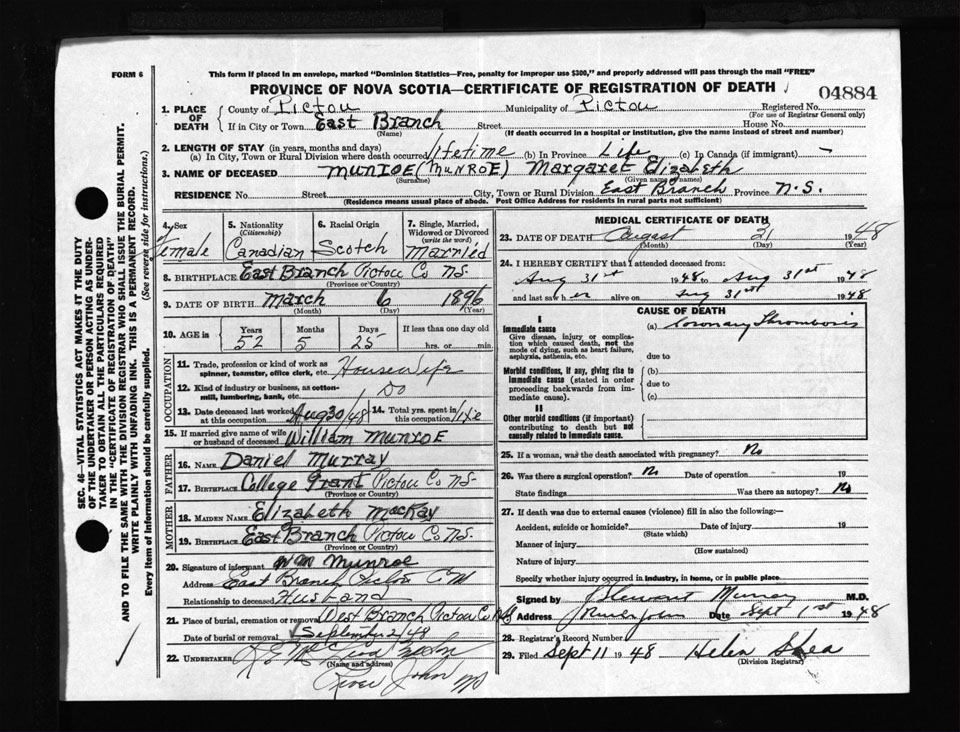 FORM 6
This form if placed in an envelope, marked "Dominion Statistics—Free, penalty for improper use $300," and properly addressed will pass through the mail "FREE"
PROVINCE OF NOVA SCOTIA—CERTIFICATE OF REGISTRATION OF DEATH
04884
1. PLACE OF DEATH
County of Pictou Municipality of Pictou Registered No.
(For use of Registrar General only)
If in City or Town East Branch Street House No.
(Name) (If death occurred in a hospital or institution, give the name instead of street and number)
2. LENGTH OF STAY (in years, months and days)
(a) In City, Town or Rural Division where death occurred lifetime (b) In Province Life (c) In Canada (if immigrant) —
3. NAME OF DECEASED MUNROE (MUNROE) Margaret Elizabeth
(Surname) (Given name or names)
RESIDENCE No. Street City, Town or Rural Division East Branch Province N.S.
(Residence means usual place of abode. Post Office Address for residents in rural parts not sufficient)
4. Sex Female
5. Nationality (Citizenship) Canadian
6. Racial Origin Scotch
7. Single, Married, Widowed or Divorced (write the word) Married
8. BIRTHPLACE East Branch Pictou Co NS.
(Province or Country)
9. DATE OF BIRTH March 6 1896
(Month) (Day) (Year)
10. AGE in Years Months Days If less than one day old
52 5 25 hrs. or min.
OCCUPATION
11. Trade, profession or kind of work as spinner, teamster, office clerk, etc. Housewife
12. Kind of industry or business, as cotton-mill, lumbering, bank, etc. Do
13. Date deceased last worked at this occupation Aug 30/48
14. Total yrs. spent in this occupation Life
15. If married give name of wife or husband of deceased William MUNROE
FATHER
16. NAME Daniel Murray
17. BIRTHPLACE College Grant Pictou Co NS
(Province or Country)
MOTHER
18. MAIDEN NAME Elizabeth MacKay
19. BIRTHPLACE East Branch Pictou Co NS.
(Province or Country)
20. Signature of informant Wm Munroe
Address East Branch Pictou
Relationship to deceased Husband
21. Place of burial, cremation or removal West Branch Pictou Co N.S
Date of burial or removal September 2/48
22. UNDERTAKER
(Name and address)
River John NS
MEDICAL CERTIFICATE OF DEATH
23. DATE OF DEATH August 31 1948
(Month) (Day) (Year)
24. I HEREBY CERTIFY that I attended deceased from:
Aug 31st 1948 to Aug 31st 1948
and last saw her alive on Aug 31st 1948
CAUSE OF DEATH
I
Immediate cause (a) Coronary Thrombosis
Give disease, injury or complication which caused death, not the mode of dying, such as heart failure, asphyxia, asthenia, etc.
due to
Morbid conditions, if any, giving rise to immediate cause (stated in order proceeding backwards from immediate cause).
(b)
due to
(c)
II
Other morbid conditions (if important) contributing to death but not causally related to immediate cause.
25. If a woman, was the death associated with pregnancy? No
26. Was there a surgical operation? No Date of operation 19
State findings Was there an autopsy? No
27. If death was due to external causes (violence) fill in also the following:—
Accident, suicide or homicide? Date of injury 19
(State which)
Manner of injury
(How sustained)
Nature of injury
Specify whether injury occurred in industry, in home, or in public place
Signed by Murray M.D.
Address River John Date Sept 1st 1948
28. Registrar's Record Number
29. Filed Sept 11 1948 Helen Shea
(Division Registrar)
SEC. 46—VITAL STATISTICS ACT MAKES IT THE DUTY
OF THE UNDERTAKER OR PERSON ACTING AS UNDER-
TAKER TO OBTAIN ALL THE PARTICULARS REQUIRED
IN THE "CERTIFICATE OF REGISTRATION OF DEATH"
AND TO FILE THE SAME WITH THE DIVISION REGISTRAR WHO SHALL ISSUE THE BURIAL PERMIT.
WRITE PLAINLY WITH UNFADING INK. THIS IS A PERMANENT RECORD.
Every item of information should be carefully supplied. (See reverse side for instructions.)